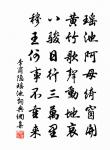 瑤池阿母綺窗開
黃竹歌聲動地哀
八駿日行三萬里
穆王何事不重來
李商隱瑤池詩